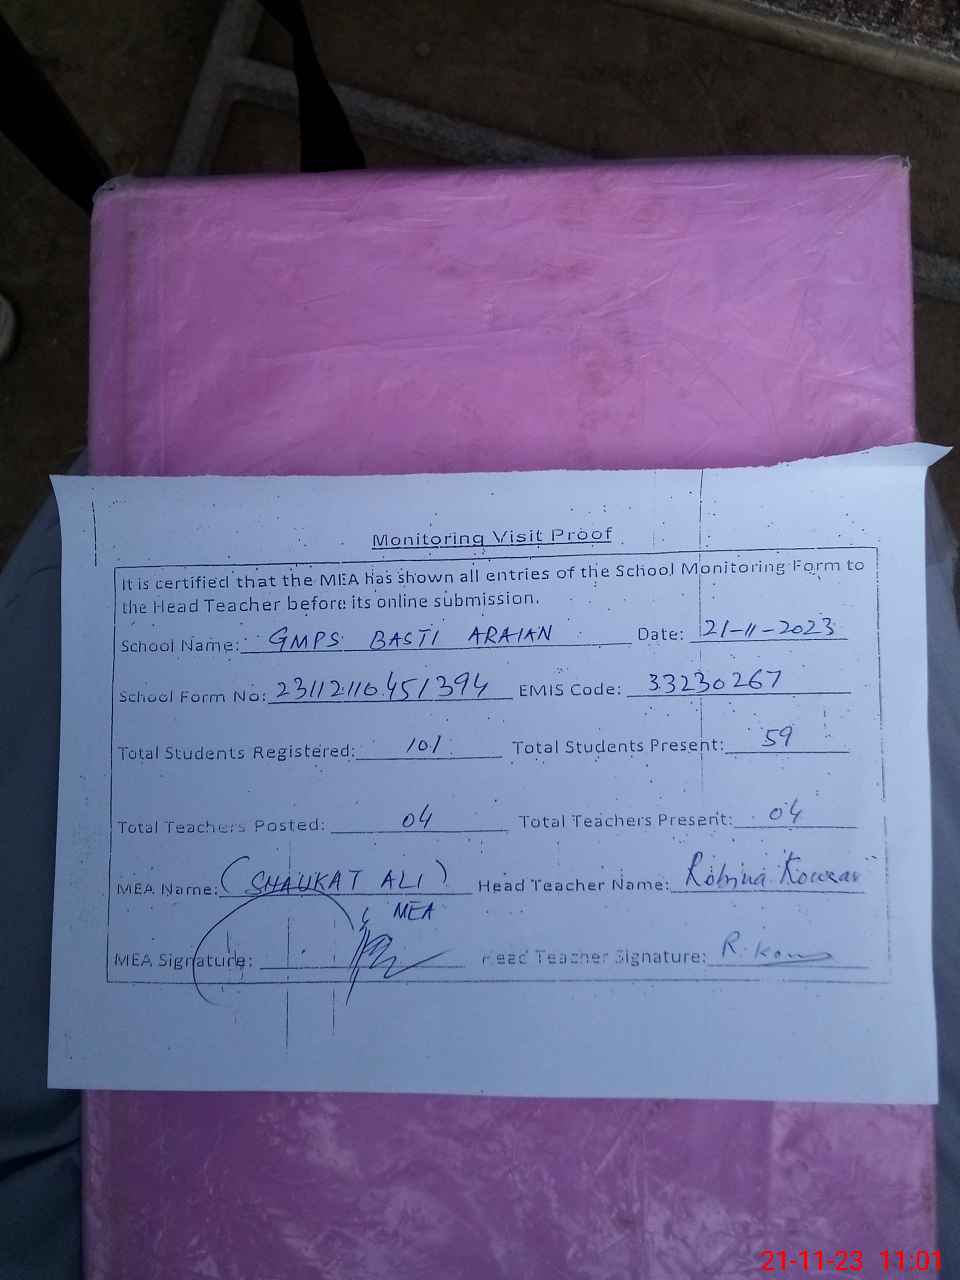 Monitoring Visit Proof
It is certified that the MEA has shown all entries of the School Monitoring Form to
the Head Teacher before its online submission.
School Name: GMPS BASTI ARAIAN Date: 21-11-2023
School Form No: EMIS Code: 33230267
Total Students Registered: 101 Total Students Present: 59
Total Teachers Posted: 04 Total Teachers Present: 04
MEA Name: (SHAUKAT ALI) Head Teacher Name: Robina Kowsar
MEA
MEA Signature: Head Teacher Signature: R. Kows
21-11-23 11:01